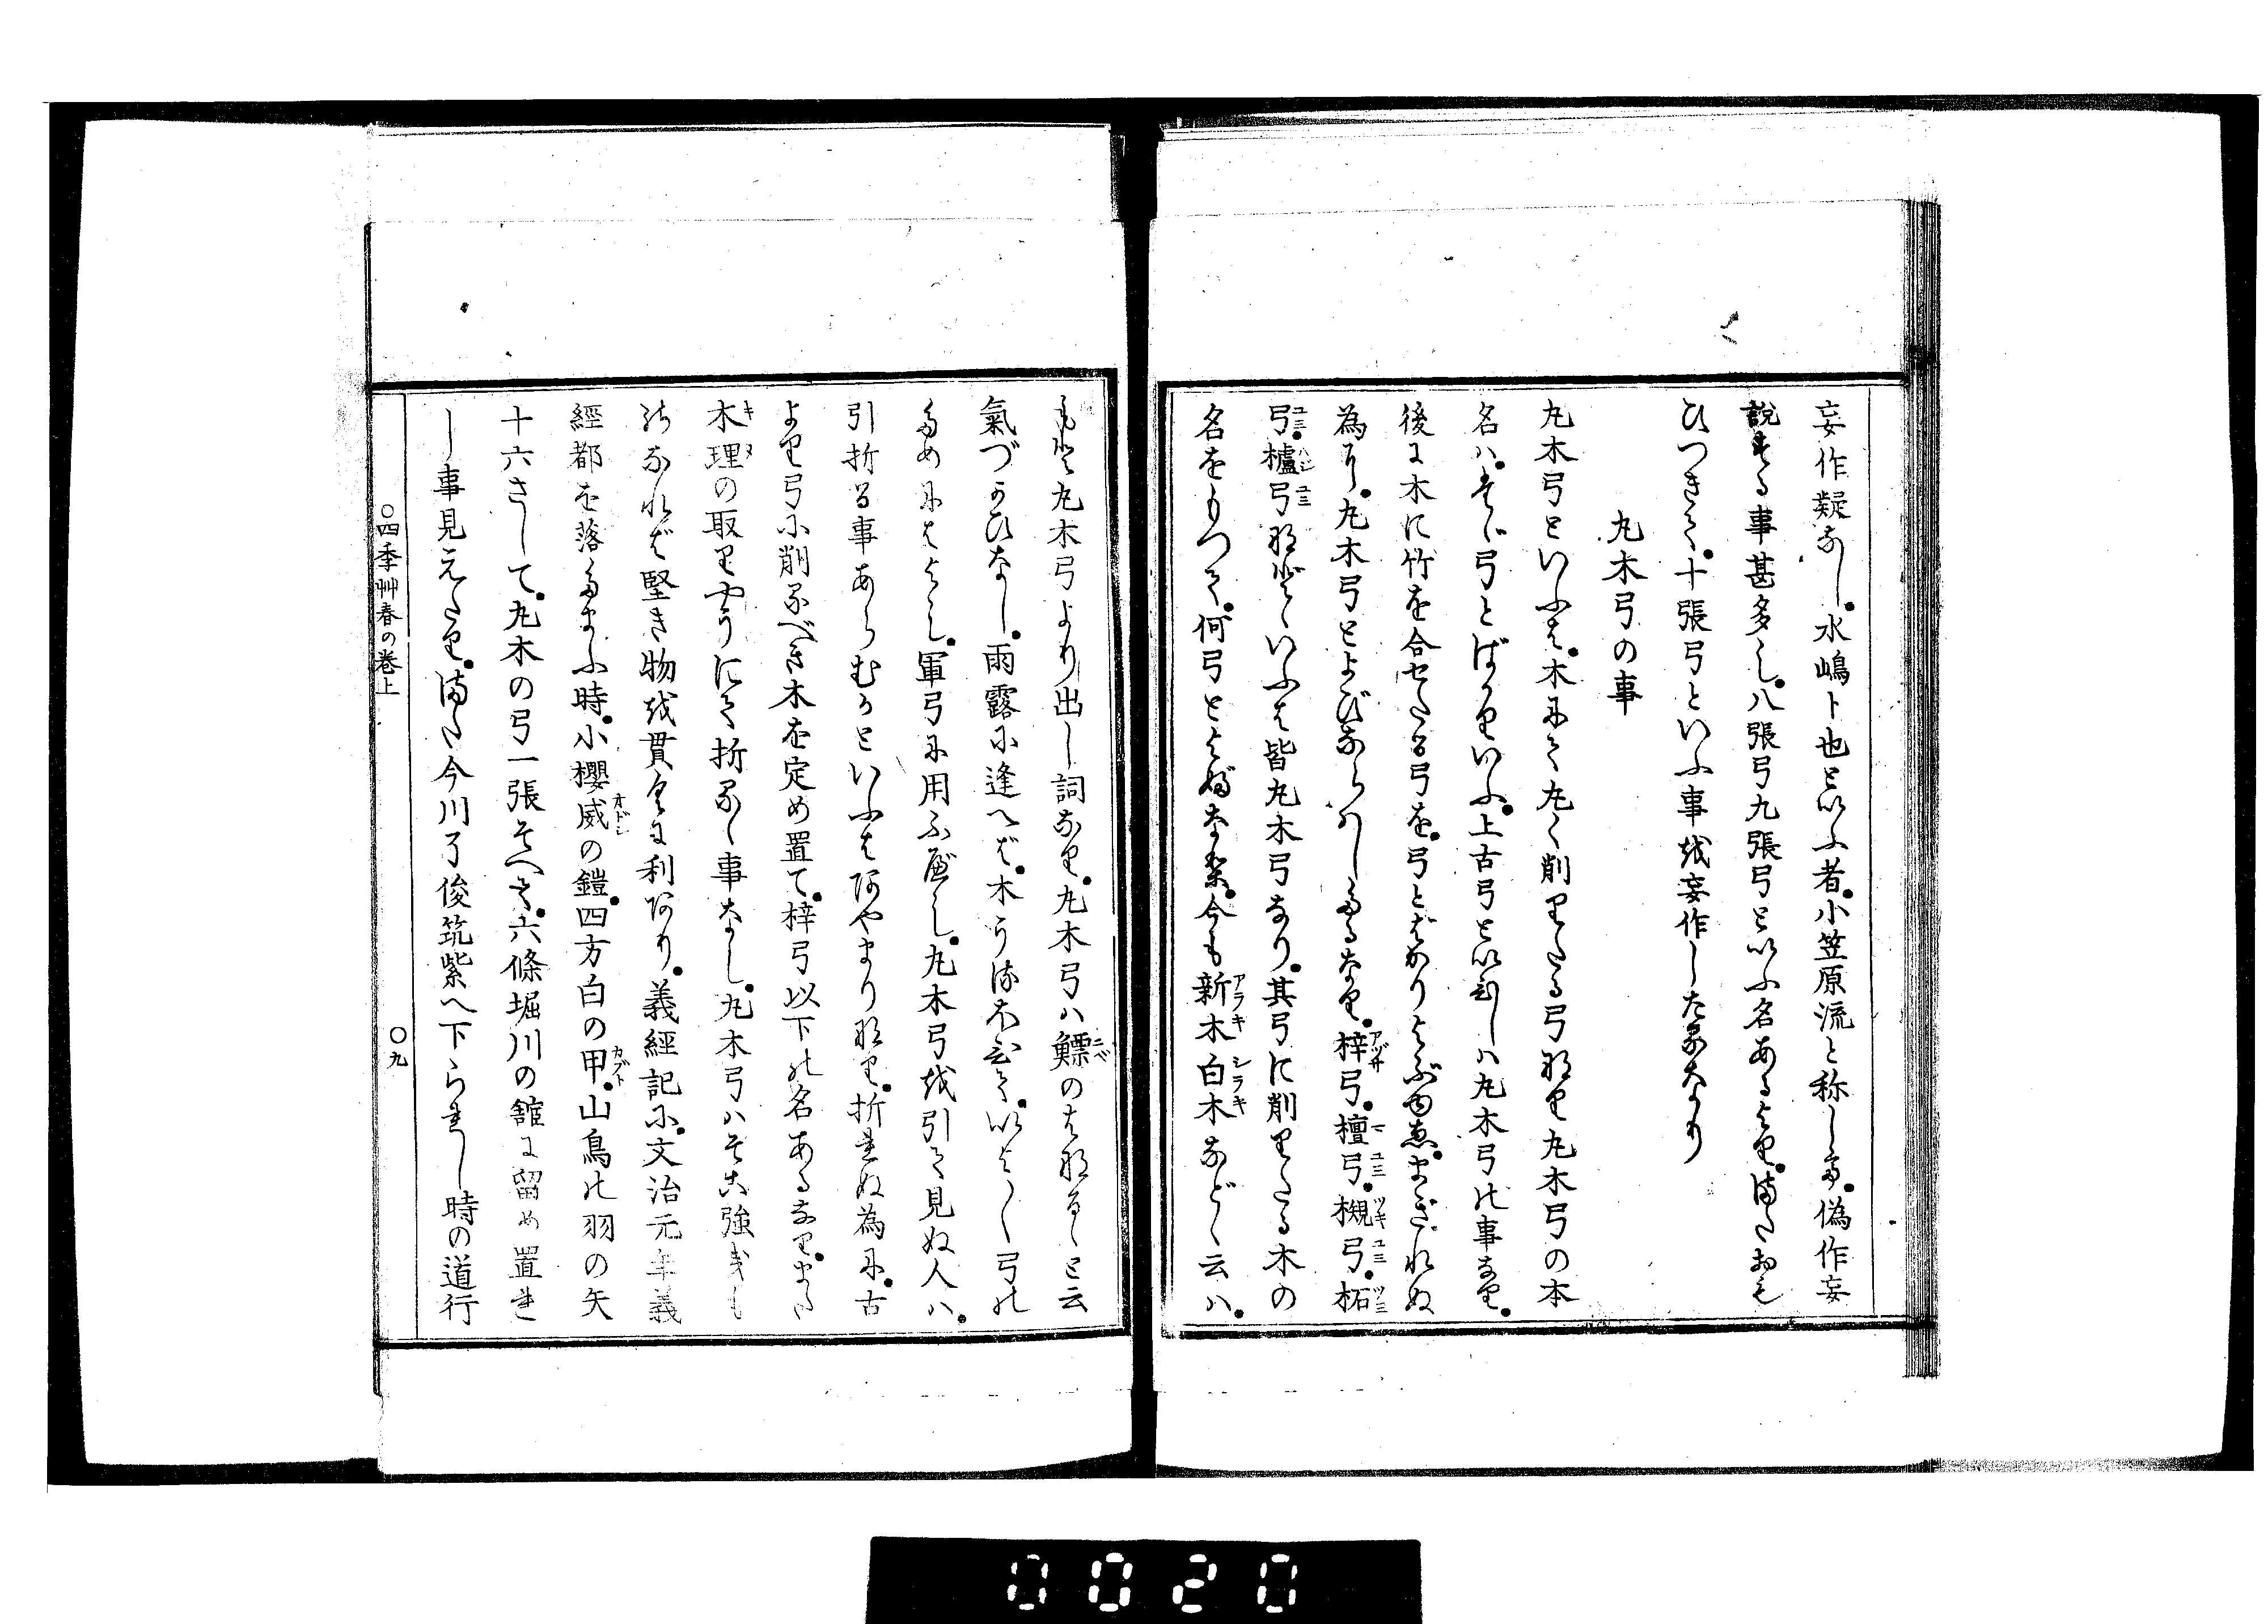 妄作疑なし。水嶋卜也といふ者。小笠原流と称して。偽作妄
説する事甚多し。八張弓九張弓といふ名あるより。またおも
ひつきて。十張弓といふ事を妄作したるなり
丸木弓の事
丸木弓といふは。木にて丸く削りたる弓なり丸木弓の本
名は。たゞ弓とばかりいふ。上古弓といひしは丸木弓の事なり。
後に木に竹を合せたる弓を。弓とばかりよぶゆゑ。まぎれぬ
為に。丸木弓とよびならはしたるなり。梓弓。檀弓。槻弓。柘
弓。櫨弓などゝいふは皆丸木弓なり。其弓に削りたる木の
名をもつて。何弓とよぶなり。今も新木白木などゝ云は。
もと丸木弓より出し詞なり。丸木弓は鰾のはなるゝと云
氣づかひなし。雨露に逢へば。木うるほひて。いよ〳〵弓の
ためにはよし。軍弓に用ふべし。丸木弓を引て見ぬ人は。
引折る事あらむかといふはあやまりなり。折れぬ為に。古
より弓に削るべき木を定め置て。梓弓以下の名あるなり。また
木理の取りやうにて折るゝ事なし。丸木弓はそこ強きも
のなれば堅き物を貫くに利あり。義經記に。文治元年義
經都を落たまふ時。小櫻威の鎧。四方白の甲。山鳥の羽の矢
十六さして。丸木の弓一張そへて。六條堀川の舘に留め置れ
し事見えたり。また今川了俊筑紫へ下られし時の道行
〇四季艸春の卷上
〇九
0020